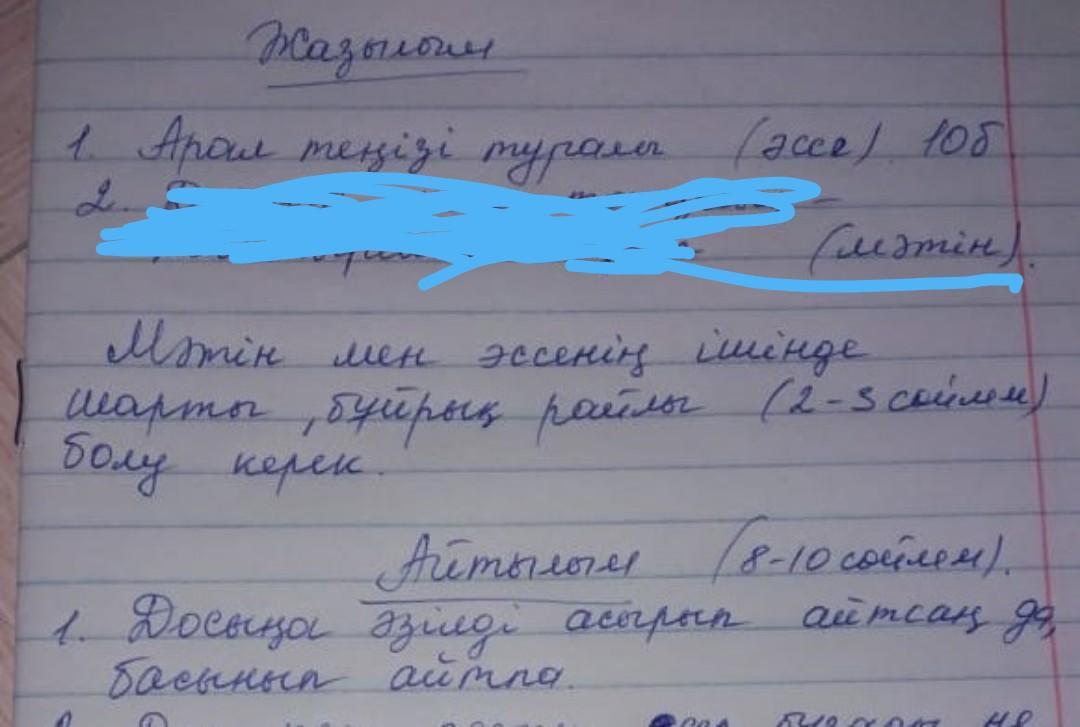 Жазылым
1. Арал теңізі туралы (эссе) 10б
2.
(мәтін).
Мәтін мен эссенің ішінде
шартты, бұйрық райлы (2-3 сөйлем)
болу керек.
Айтылым (8-10 сөйлем).
1. Досыңа әзілді асырып айтсаң да,
басынып айтпа.